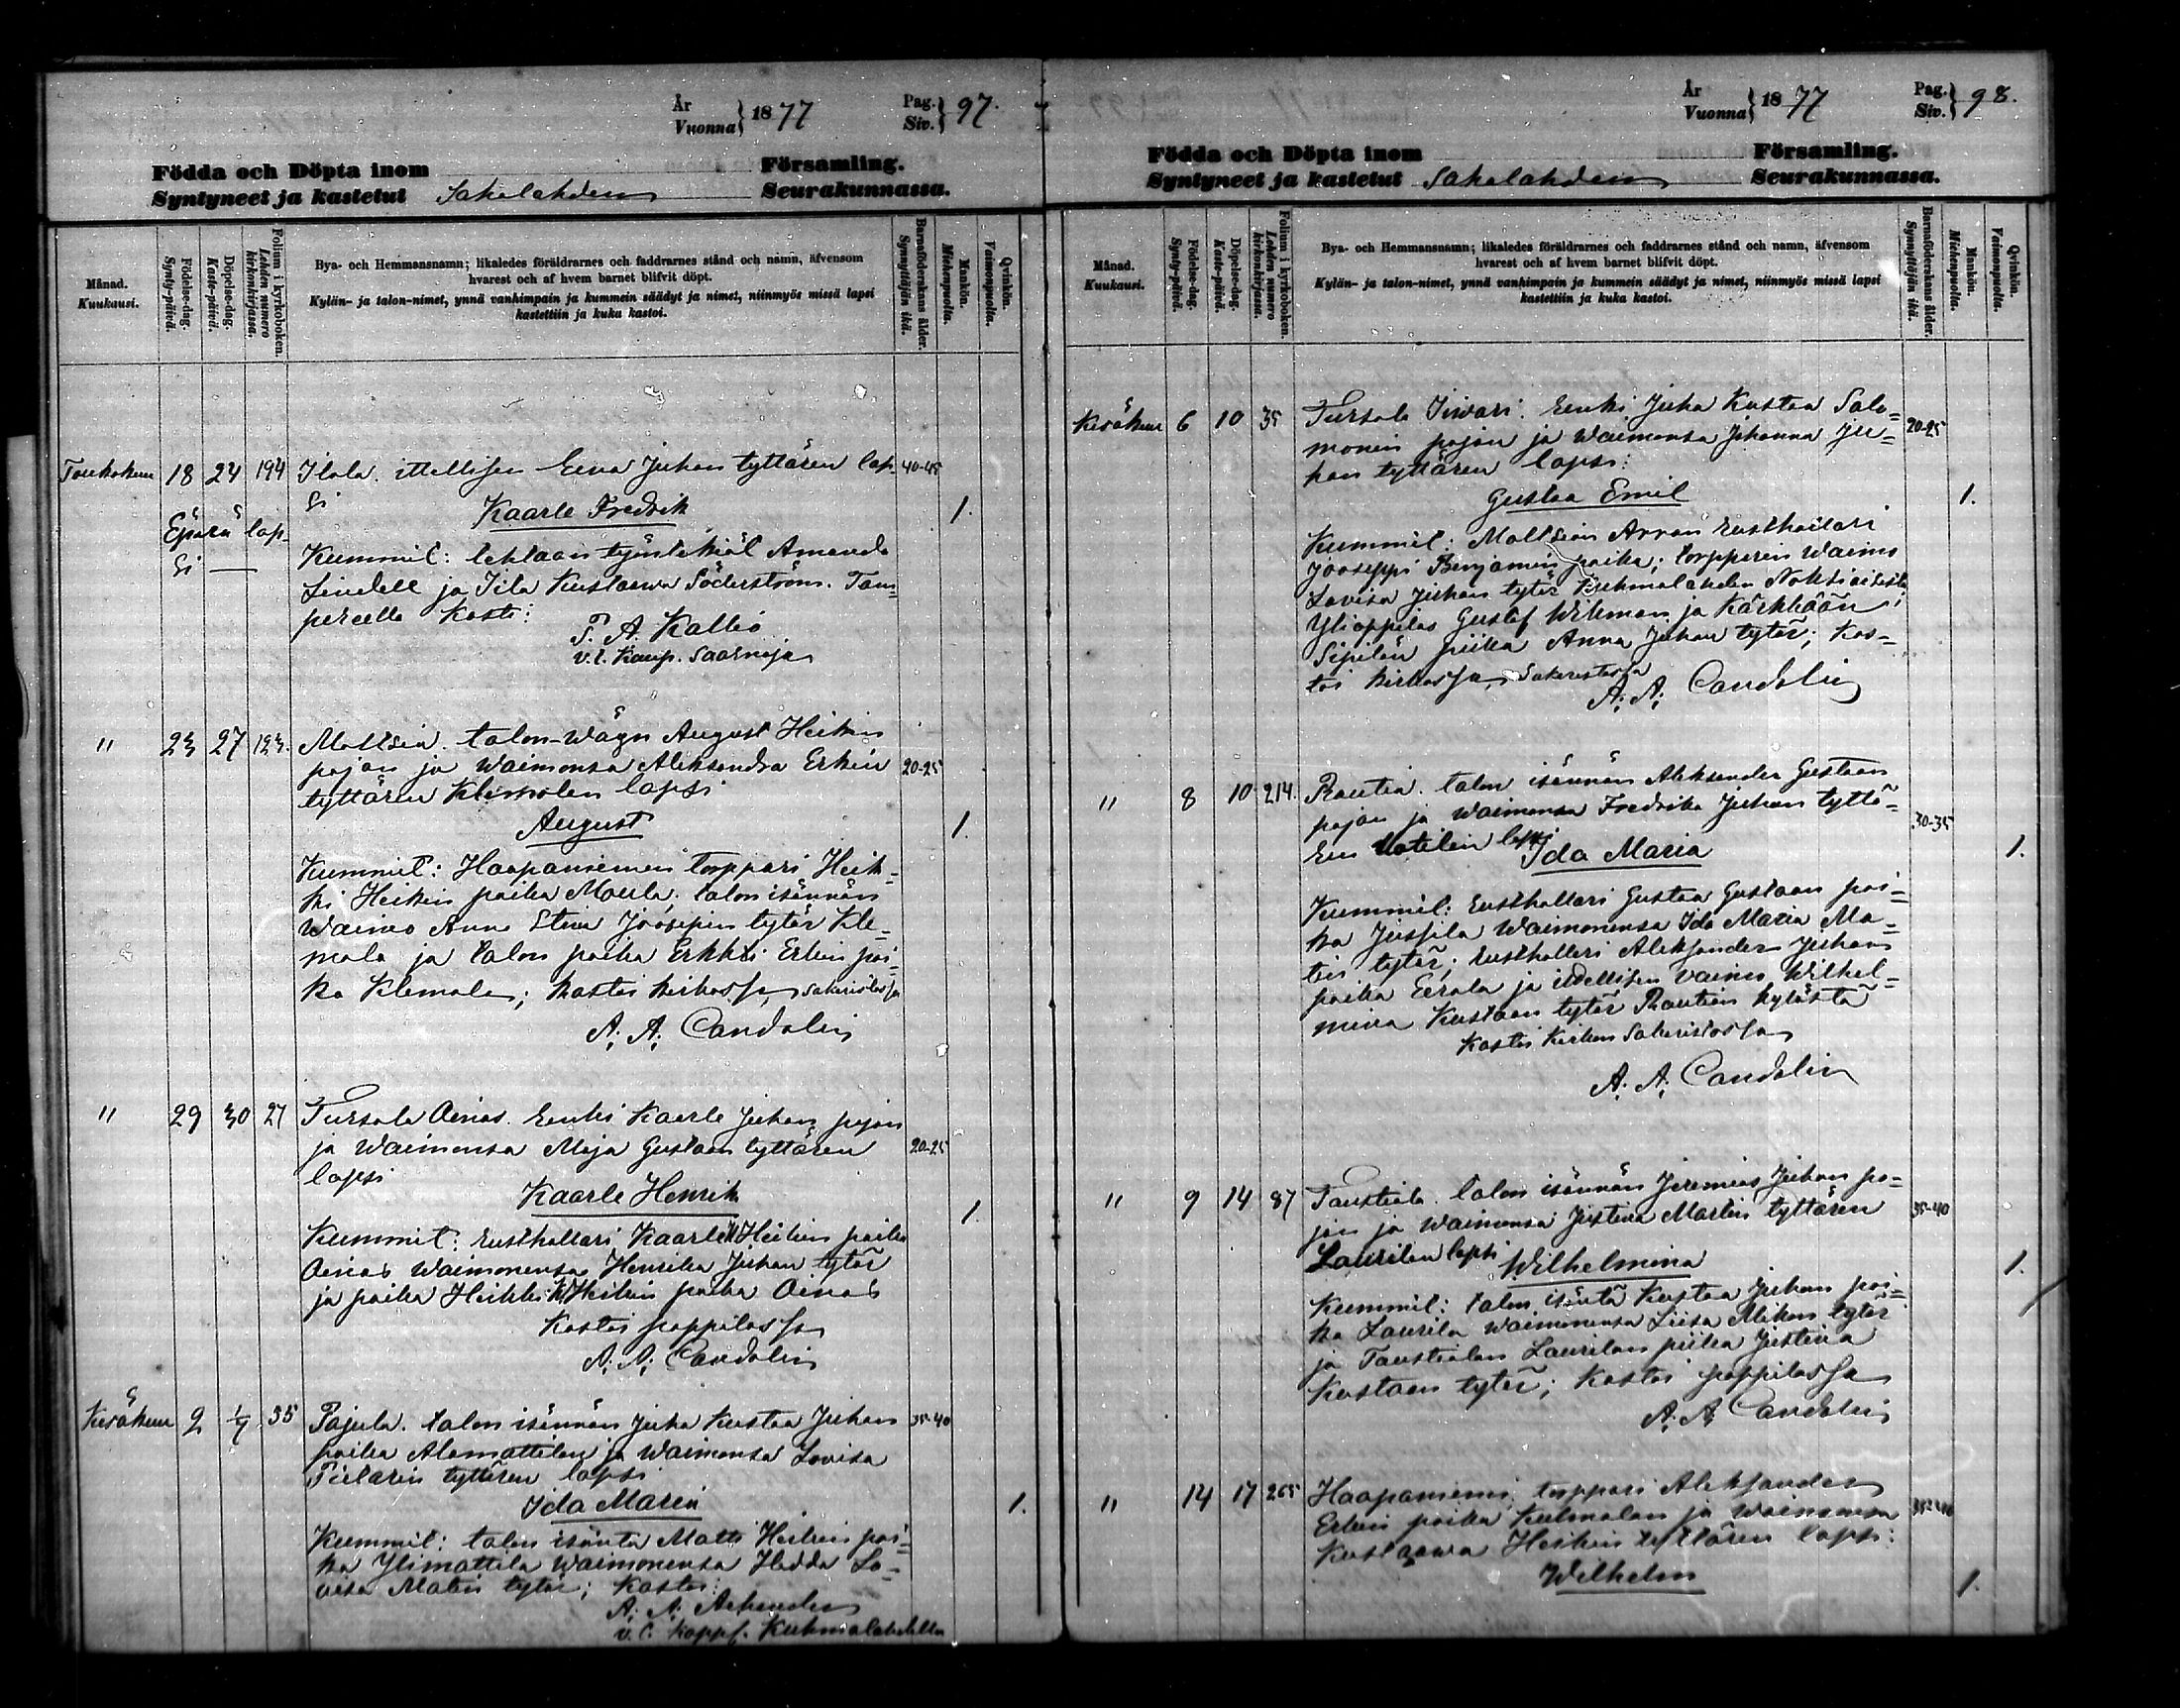 År
Vuonna } 1877
Pag.
Siv. } 97.
Födda och Döpta inom Församling.
Syntyneet ja kastetut Sahalahden Seurakunnassa.
Månad.
Kuukausi.
Födelse-dag.
Synty-päivä.
Döpelse-dag.
Kaste-päivä.
Folium i kyrkoboken.
Lehden numero kirkonkirjassa.
Bya- och Hemmansnamn; likaledes föräldrarnes och faddrarnes stånd och namn, äfvensom
hvarest och af hvem barnet blifvit döpt.
Kylän- ja talon-nimet, ynnä vanhimpain ja kummein säädyt ja nimet, niinmyös missä lapsi
kastettiin ja kuka kastoi.
Barnaföderskans ålder.
Synnyttäjän ikä.
Mankön.
Miehenpuolta.
Qvinkön.
Vaimonpuolta.
Toukokuu 18 24 194 Ilola. ittellisen Eeva Juhan tyttären lap- 40-45
si
Kaarle Fredrik 1.
Epärä lap-
si —
Kummit: tehtaan työntekiät Amanda
Lindell ja Ida Kustaava Söderström. Tam=
pereella Kasti:
T. A. Kallio
v.t. Kaup. saarnaja
" 23 27 123. Mattsia. talon-wäyn August Heikin
pojan ja waimonsa Aleksandra Erkin 20-25
tyttären Klemolan lapsi
August 1.
Kummit: Haapaniemen torppari Heik-
ki Heikin poika Moula; talon isännän
Waimo Anna Stiina Joosepin tytär Kle-
mola ja talon poika Erkki Erkin poi-
ka Klemola; kastoi kirkossa, sakaristossa
A. A. Candolin
" 29 30 27 Tursola Oinas. Renki Kaarle Juhan pojan
ja Waimonsa Maja Gustaan tyttären 20-25
lapsi
Kaarle Henrik 1.
Kummit: Rusthollari Kaarle Heikin poika
Oinas Waimonensa Henrika Juhan tytär
ja poika Heikki Heikin poika Oinas
Kastoi pappilassa
A. A. Candolin
Kesäkuu 2 1/7 35 Pajula. talon isännän Juha Kustaa Juhan 35-40
poika Alamattilan ja Waimonsa Lovisa
tyttären lapsi
Ida Maria 1.
Kummit: talon isäntä Matti Heikin poi-
ka Ylimattila Waimonensa Hedda Lo-
visa Matin tytär; Kastoi:
A. A.
v.t. kappl. Kuhmalahdella
År
Vuonna } 1877
Pag.
Siv. } 98.
Födda och Döpta inom Församling.
Syntyneet ja kastetut Sahalahden Seurakunnassa.
Månad.
Kuukausi.
Födelse-dag.
Synty-päivä.
Döpelse-dag.
Kaste-päivä.
Folium i kyrkoboken.
Lehden numero kirkonkirjassa.
Bya- och Hemmansnamn; likaledes föräldrarnes och faddrarnes stånd och namn, äfvensom
hvarest och af hvem barnet blifvit döpt.
Kylän- ja talon-nimet, ynnä vanhimpain ja kummein säädyt ja nimet, niinmyös missä lapsi
kastettiin ja kuka kastoi.
Barnaföderskans ålder.
Synnyttäjän ikä.
Mankön.
Miehenpuolta.
Qvinkön.
Vaimonpuolta.
Kesäkuu 6 10 35 Tursola Iiwari. Renki Juha Kustaa Salo- 20-25
monin pojan ja Waimonsa Johanna Ju-
han tyttären lapsi:
Gustaa Emil 1.
Kummit: Mattsian Arran Rusthollari
Jooseppi Benjamin poika; torpparin Waimo
Lovisa Juhan tytär Kuhmalahden
Ylioppilas Gustaf Wikman ja Kärkkään
Sipilän piika Anna Juhan tytär; Kas-
toi kirkossa, sakaristossa
A. A. Candolin
" 8 10 214. Rautia. talon isännän Aleksander Gustaan
pojan ja Waimonsa Fredrika Juhan tyttä- 30-35
ren Uotilan lapsi
Ida Maria 1.
Kummit: Rusthollari Gustaa Gustaan poi-
ka Jussila Waimonensa Ida Maria Ma-
tin tytär; Rusthollari Aleksander Juhan
poika Eerola ja itsellisen Vaimo Wilhel-
mina Kustaan tytär Rautian kylästä
Kastoi Kirkon Sakaristossa
A. A. Candolin
" 9 14 87 Taustiala. talon isännän Jeremias Juhan po-
jan ja Waimonsa Justina Martin tyttären 35-40
Laurilan lapsi Wilhelmina 1.
Kummit: talon isäntä Kustaa Juhan poi-
ka Laurila Waimonensa Liisa Mikon tytär
ja Taustialan Laurilan piika Justina
Kustaan tytär; Kastoi pappilassa
A. A. Candolin
" 14 17 265 Haapaniemi torppari Aleksander
Erkin poika Kulmalan ja Waimonsa 35-40
Kustaawa Heikin tyttären lapsi:
Wilhelm 1.